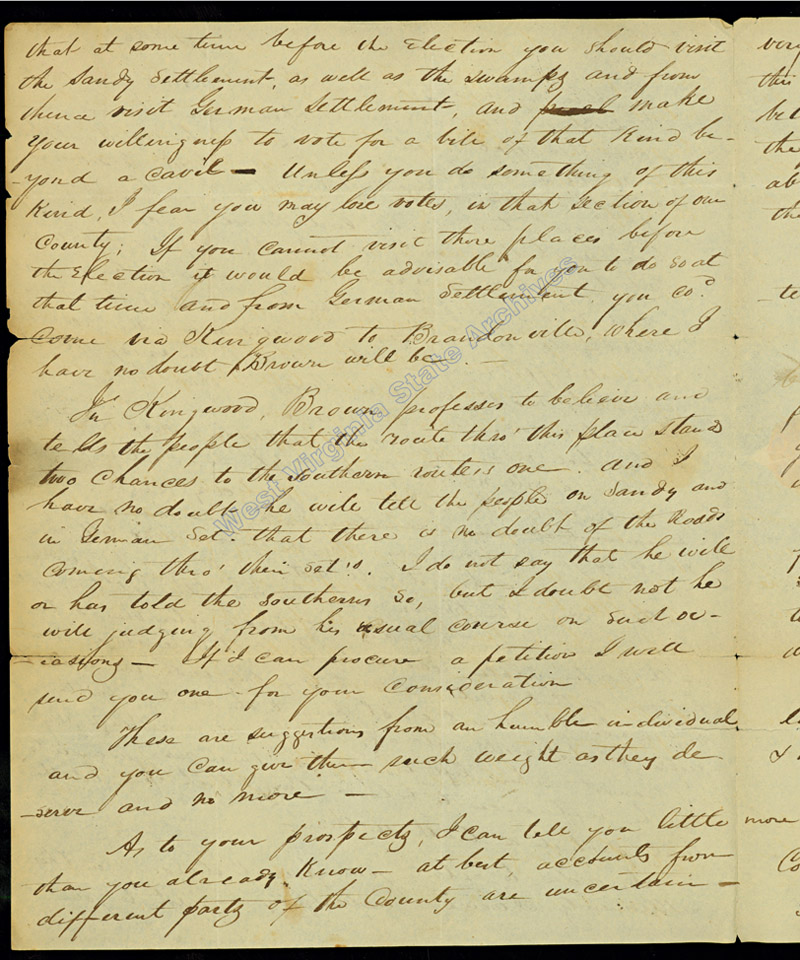 that at some time before the Election you should visit
the Sandy Settlement, as well as the Swamps and from
thence visit German Settlement, and make
your willingness to vote for a bill of that Kind be-
-yond a cavil — Unless you do something of this
Kind, I fear you may lose votes, in that Section of our
County; If you cannot visit those places before
the Election it would be advisable for you to do so at
that time and from German Settlement, you cod.
come via Kingwood to Brandonville, where I
have no doubt Brown will be —
In Kingwood, Brown professes to believe and
tells the people that the route thro' this place stands
two chances to the Southern routes one. and I
have no doubt he will tell the people on Sandy and
in German Set. that there is no doubt of the Roads
coming thro' their Set's. I do not say that he will
or has told the Southerns so, but I doubt not he
will judging from his usual course on such oc-
-casions — If I can procure a petition I will
send you one for your consideration
These are suggestions from an humble individual
and you can give them such weight as they de
-serve and no more —
As to your prospects, I can tell you little more
than you already Know — at best, accounts from
different parts of the County are uncertain —
very
this
bet
the
ab
the
te
&
Co
West Virginia State Archives